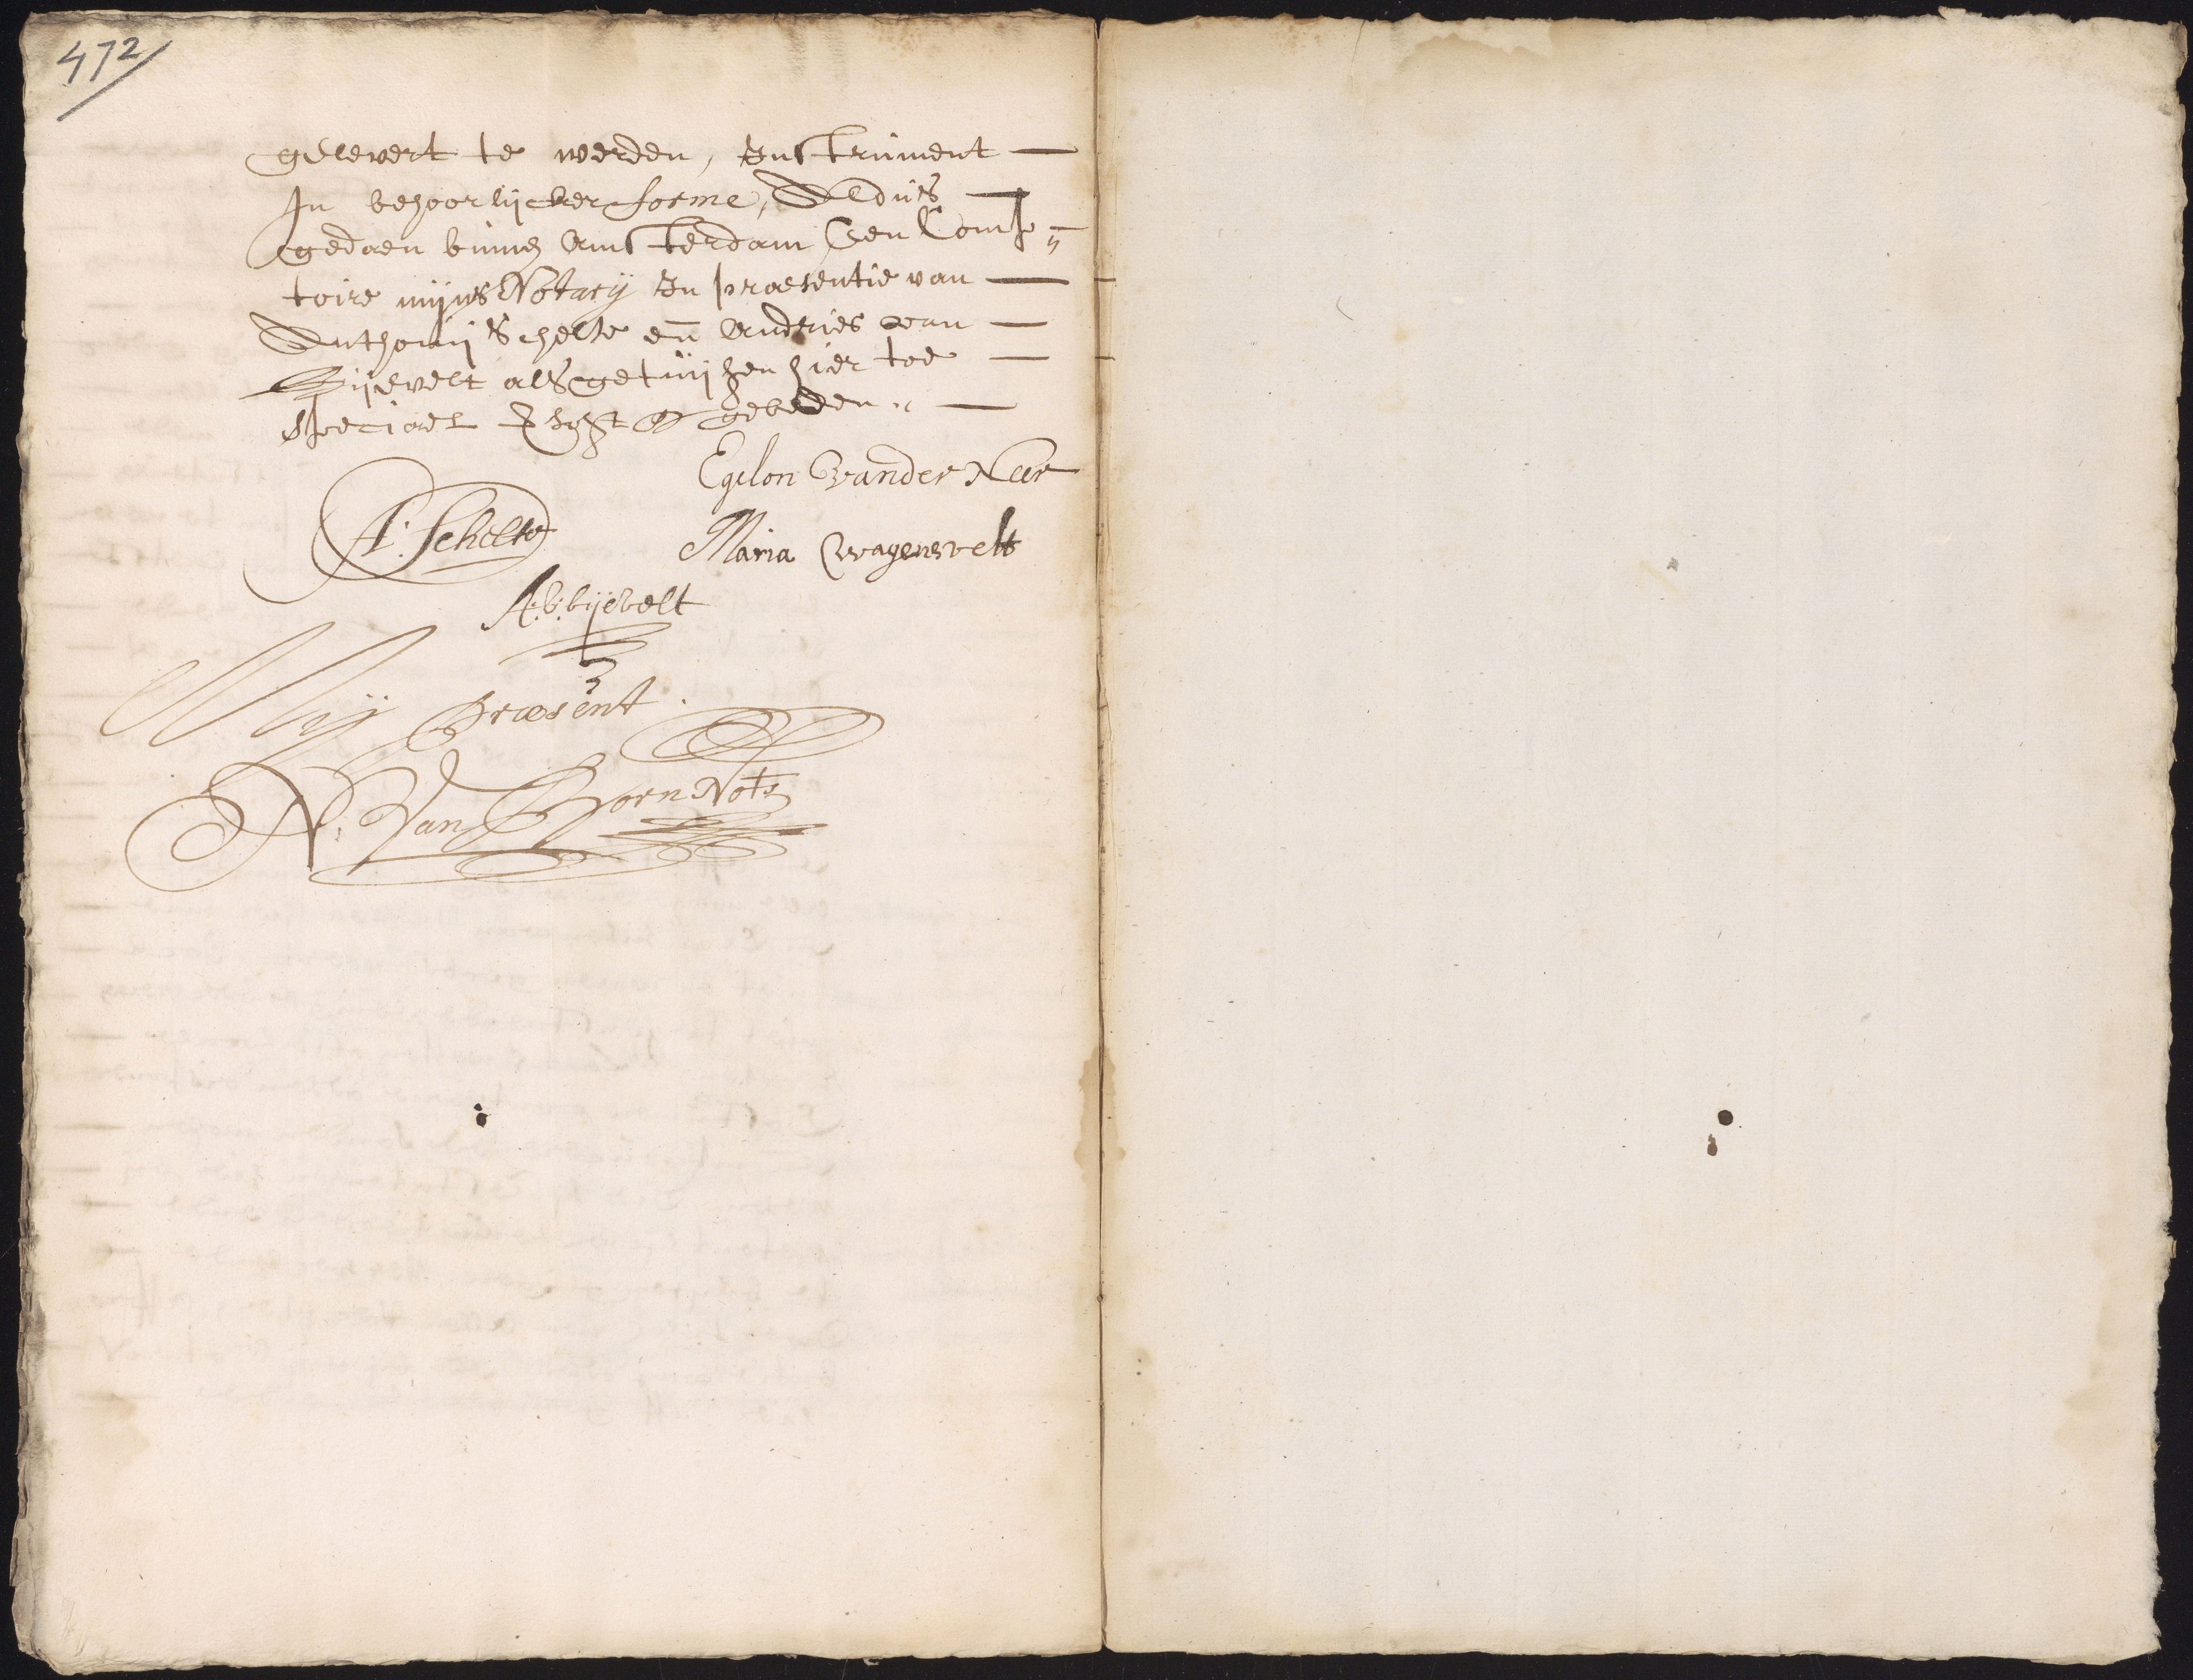 472
gelevert te werden, Instrument
In behoorlijcker forme, Aldus
gedaen binnen Amsterdam ten Comp„
toire mijns Notarij In praesentie van
Anthonij Schelte en Andries van
Bijevelt als getuijgen hier toe
speciael gebeden
Egelon vander Neer
A. Schelte
Maria wagensvelt
A. v. bijevelt
Mij Praesent
N. Van Born Nots